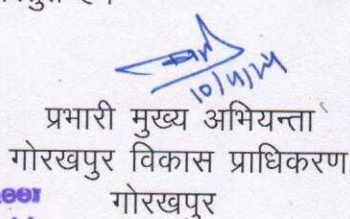 10/4/24
प्रभारी मुख्य अभियन्ता
गोरखपुर विकास प्राधिकरण
गोरखपुर